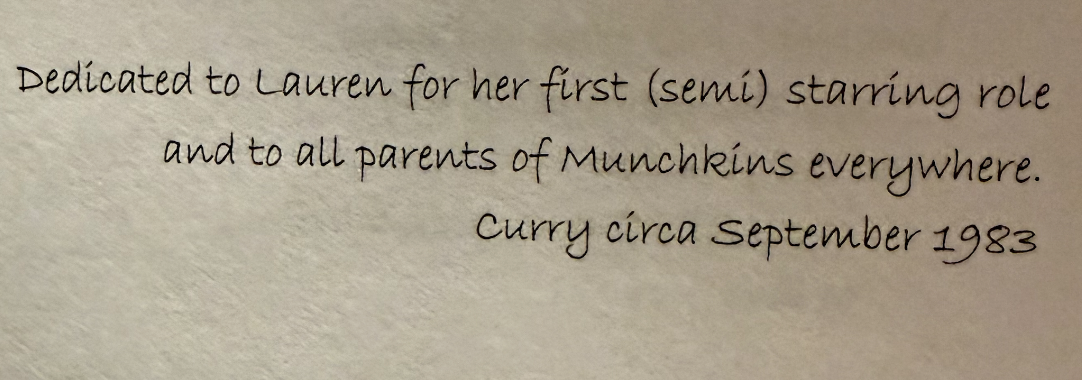 Dedicated to Lauren for her first (semi) starring role
and to all parents of Munchkins everywhere.
Curry circa September 1983